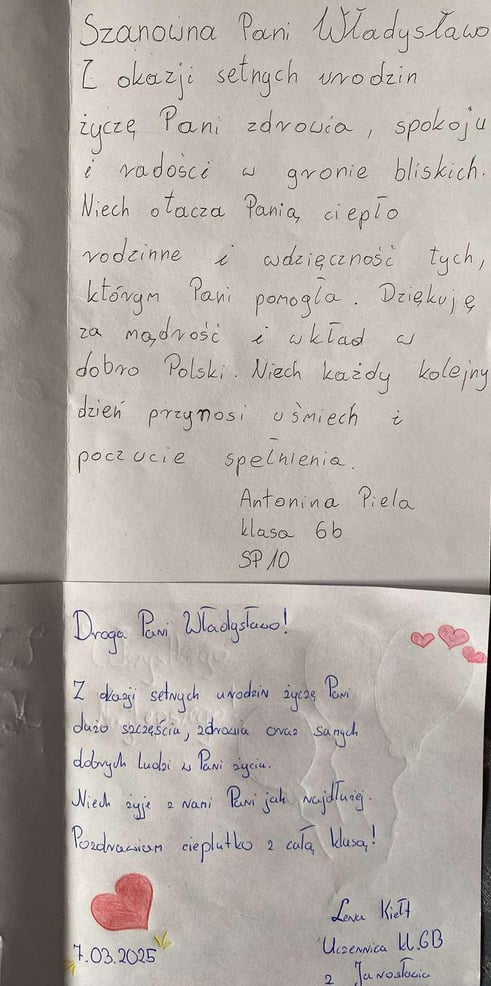 Szanowna Pani Władysławo
Z okazji setnych urodzin
życzę Pani zdrowia, spokoju
i radości w gronie bliskich.
Niech otacza Panią ciepło
rodzinne i wdzięczność tych,
którym Pani pomogła. Dziękuję
za mądrość i wkład w
dobro Polski. Niech każdy kolejny
dzień przynosi uśmiech i
poczucie spełnienia.
Antonina Piela
klasa 6b
SP 10
Droga Pani Władysławo!
Z okazji setnych urodzin życzę Pani
dużo szczęścia, zdrowia oraz samych
dobrych ludzi w Pani życiu.
Niech żyje z nami Pani jak najdłużej.
Pozdrawiam cieplutko z całą klasą!
7.03.2025
Lena
Uczennica kl.6B
z Jarosławia